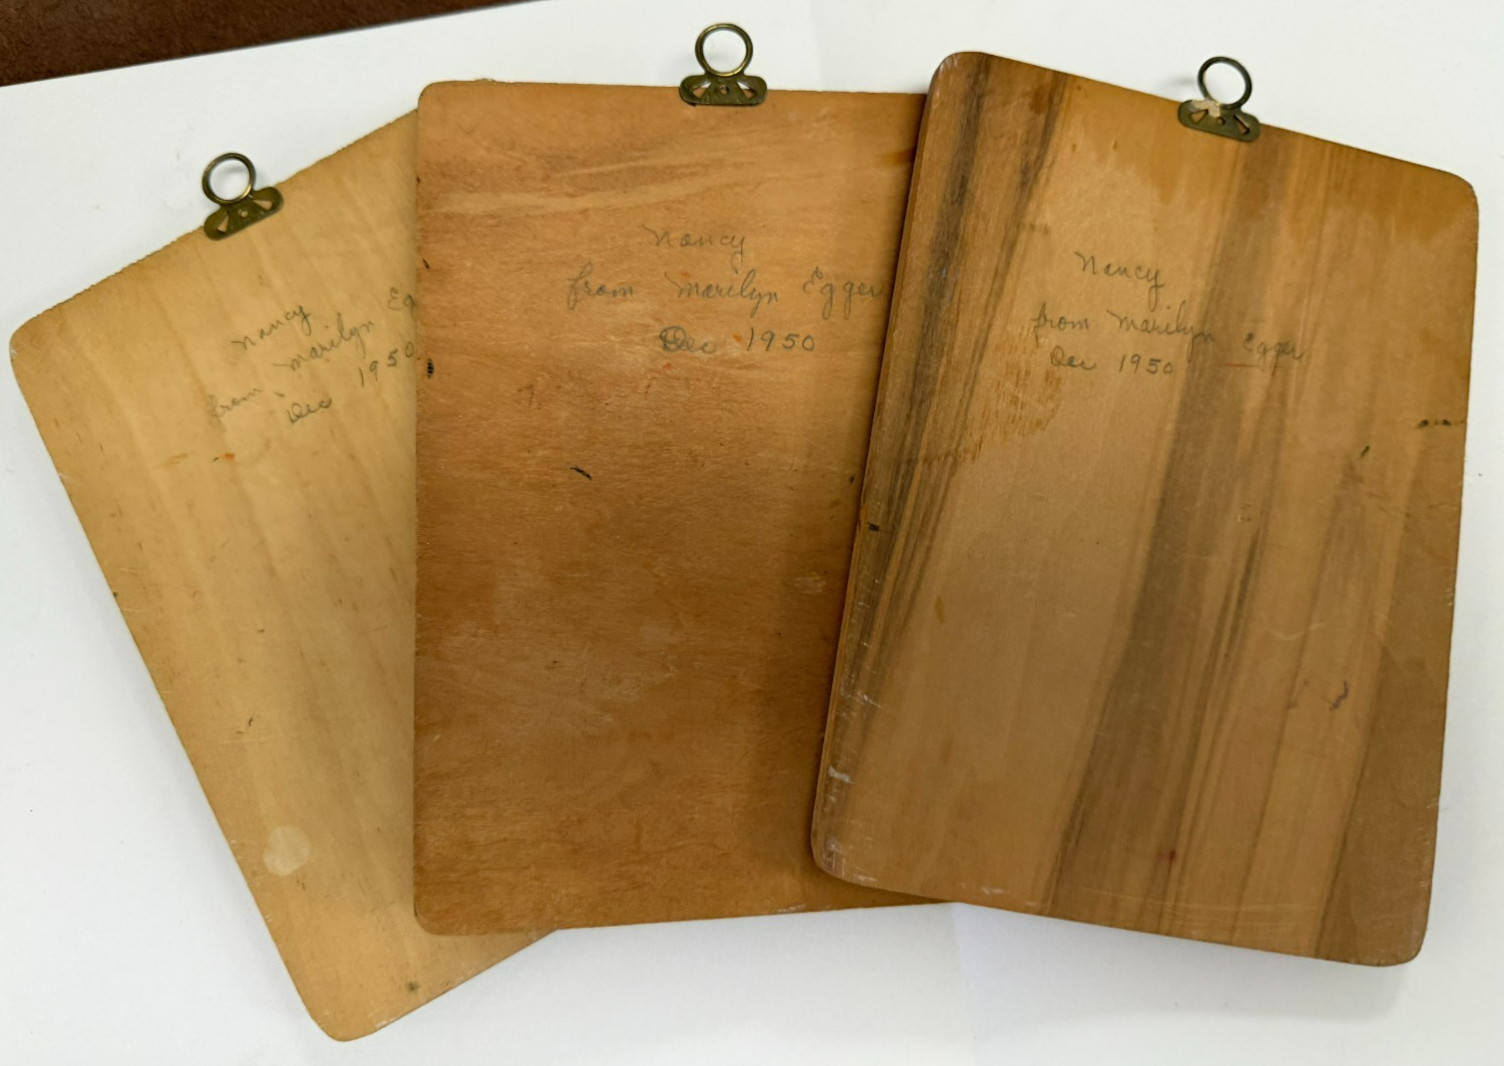 Nancy
from Marilyn Eg
Dec 1950
Nancy
from Marilyn Egger
Dec 1950
Nancy
from Marilyn Egger
Dec 1950